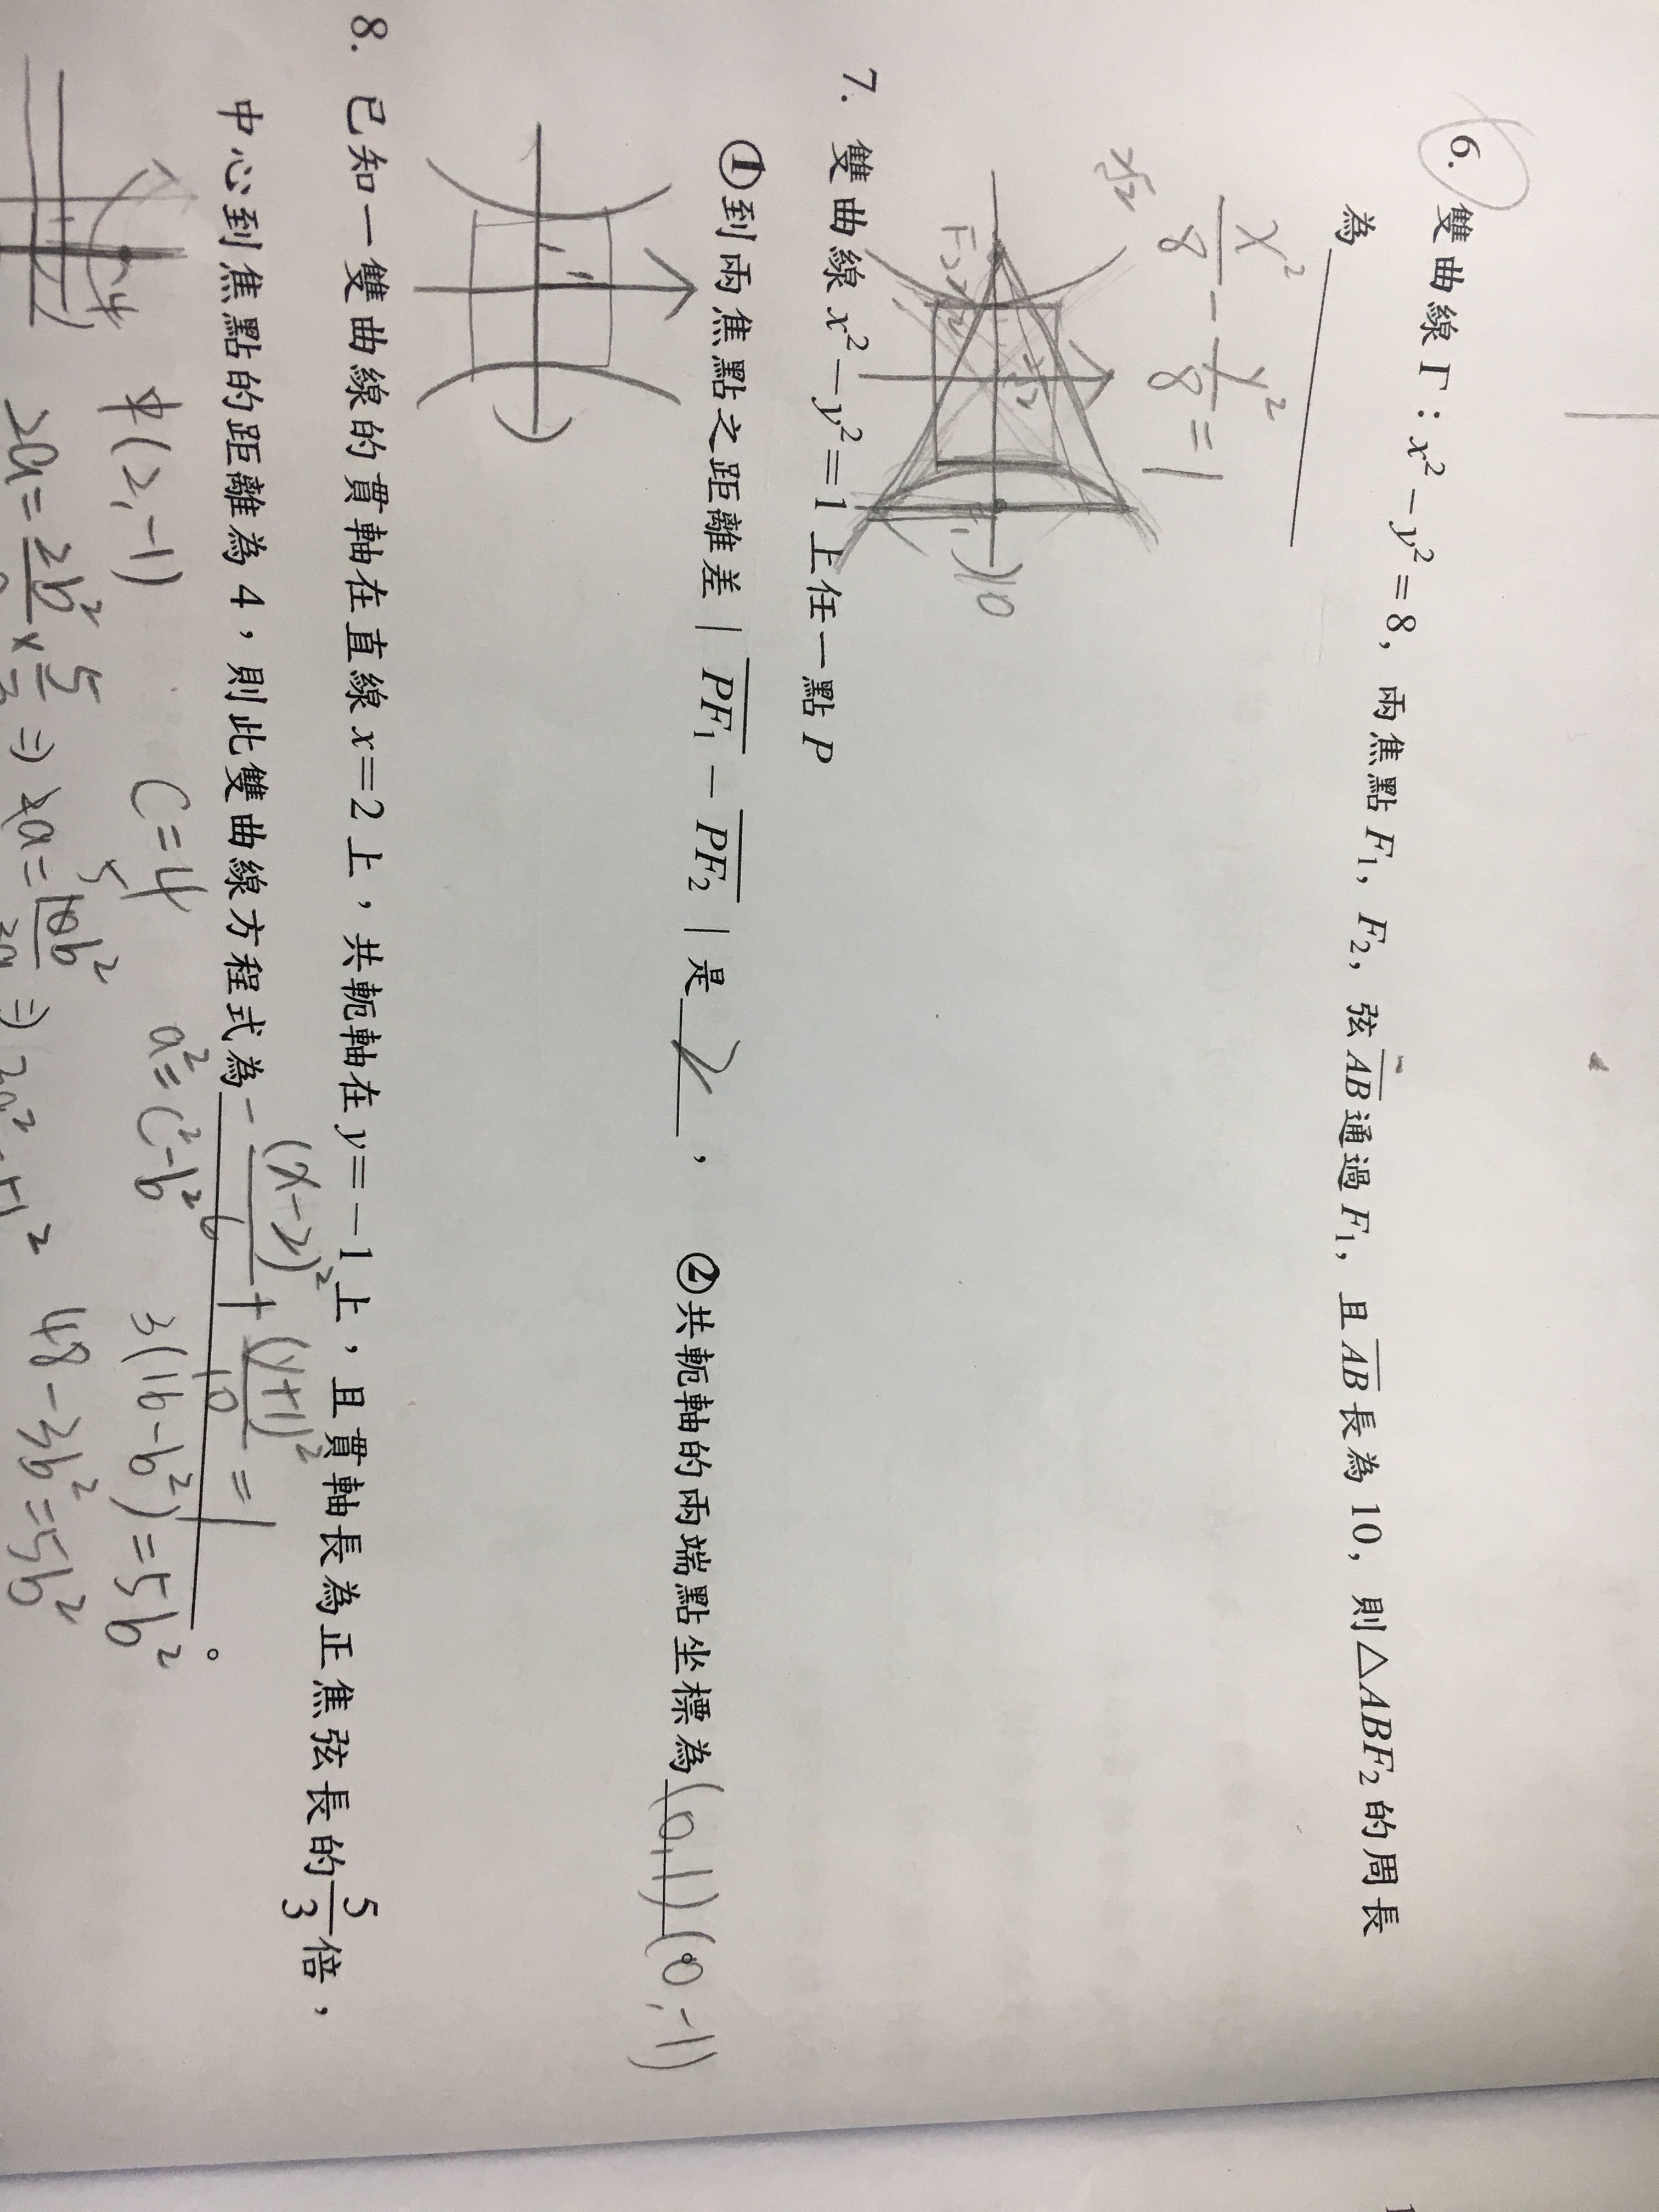 6. 雙曲線 Γ：x²－y²＝8，兩焦點 F₁，F₂，弦 AB 通過 F₁，且 AB 長為 10，則△ABF₂ 的周長
為
x²/8 - y²/8 = 1
2√2
F₂
10
7. 雙曲線 x²－y²＝1 上任一點 P
①到兩焦點之距離差｜PF₁－PF₂｜是 2 ， ②共軛軸的兩端點坐標為 (0,1)(0,-1) 。
8. 已知一雙曲線的貫軸在直線 x＝2 上，共軛軸在 y＝－1 上，且貫軸長為正焦弦長的 5/3 倍，
中心到焦點的距離為 4，則此雙曲線方程式為 -(x-2)²/6 + (y+1)²/10 = 1 。
中(2,-1) c=4 a²=c²-b² 3(16-b²)=5b²
48-3b²=5b²